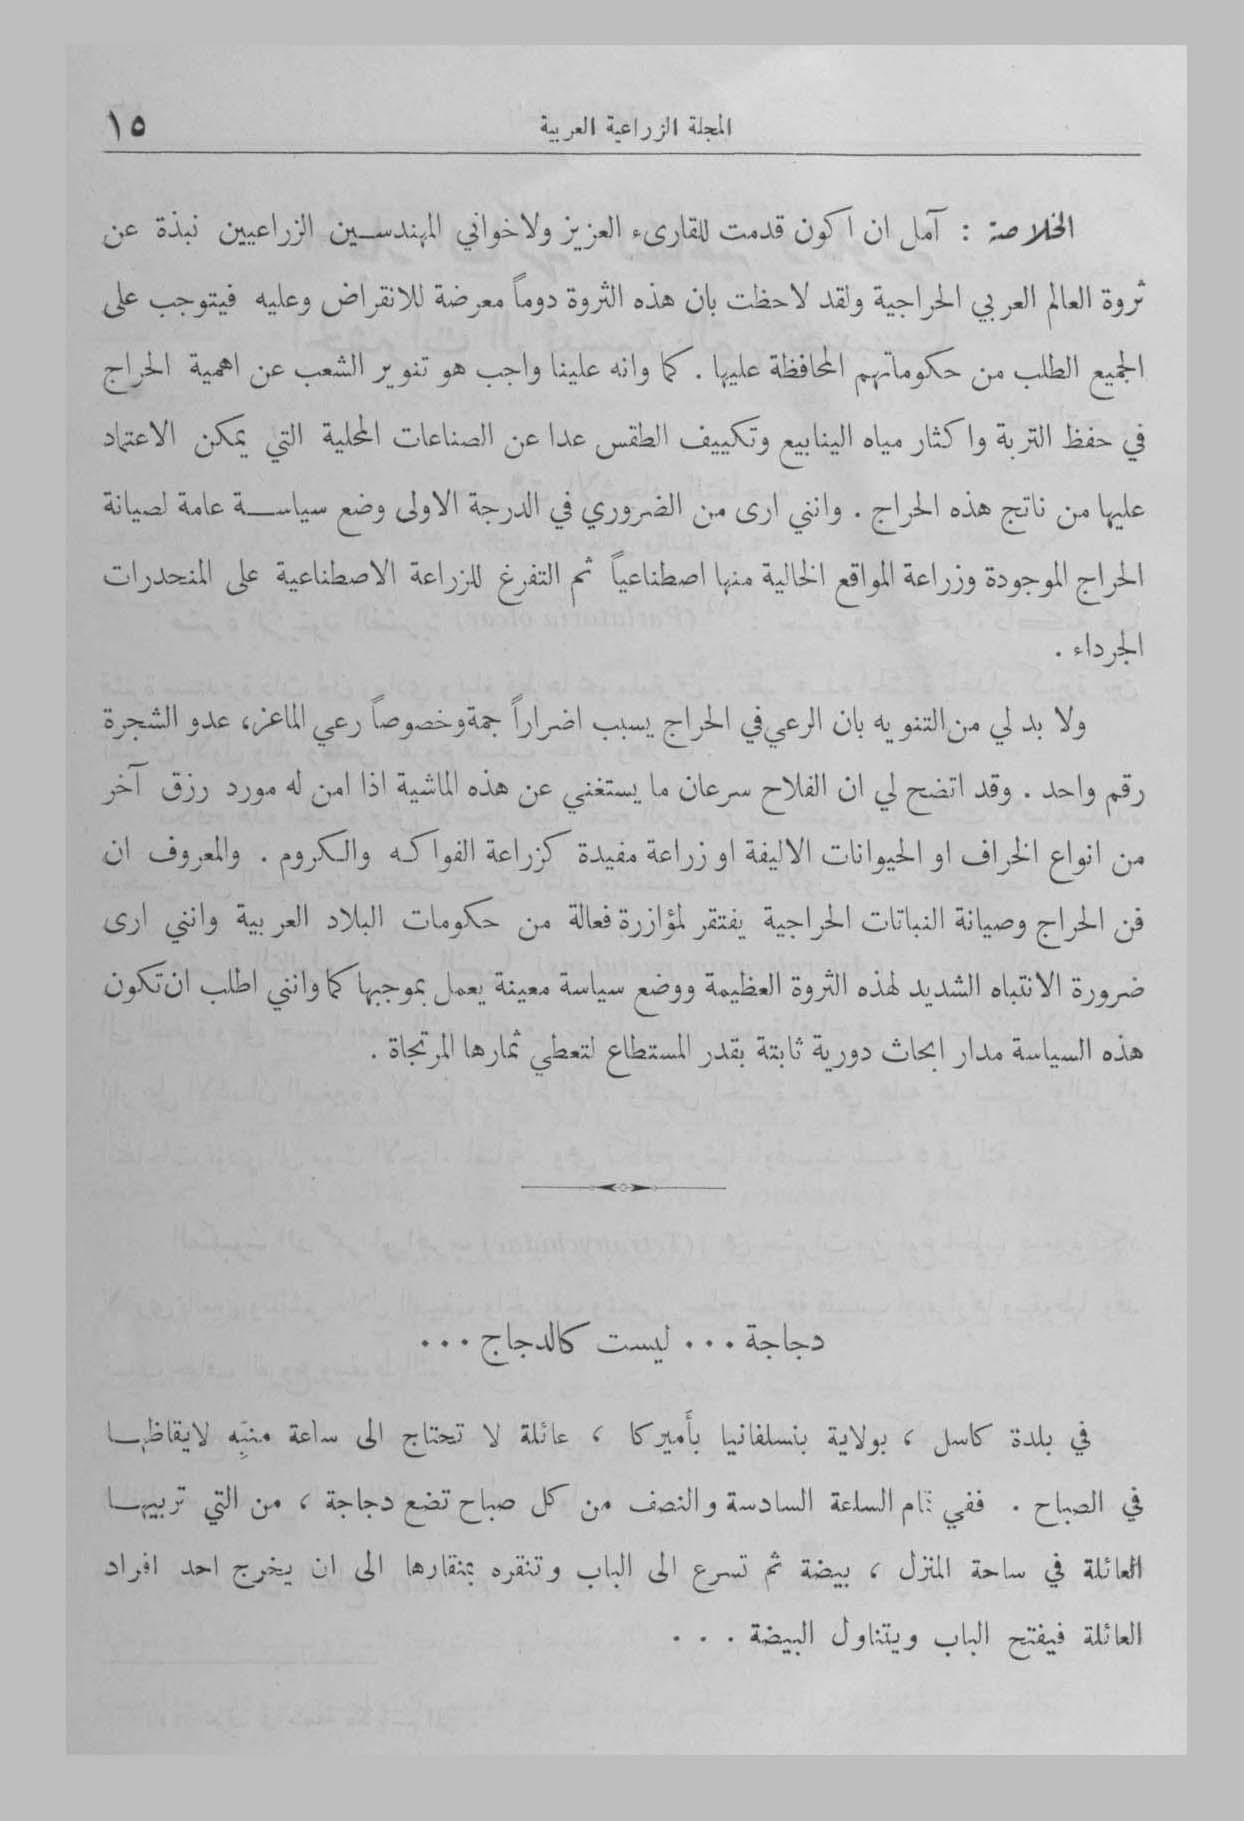 المجلة الزراعية العربية ١٥
الخلاصة : آمل ان اكون قدمت للقارىء العزيز ولاخواني المهندسين الزراعيين نبذة عن
ثروة العالم العربي الحراجية ولقد لاحظت بان هذه الثروة دوماً معرضة للانقراض وعليه فيتوجب على
الجميع الطلب من حكوماتهم المحافظة عليها . كما وانه علينا واجب هو تنوير الشعب عن اهمية الحراج
في حفظ التربة واكثار مياه الينابيع وتكييف الطقس عدا عن الصناعات المحلية التي يمكن الاعتماد
عليها من ناتج هذه الحراج . وانني ارى من الضروري في الدرجة الاولى وضع سياسة عامة لصيانة
الحراج الموجودة وزراعة المواقع الخالية منها اصطناعياً ثم التفرغ للزراعة الاصطناعية على المنحدرات
الجرداء .
ولا بد لي من التنويه بان الرعي في الحراج يسبب اضراراً جمة وخصوصاً رعي الماعز، عدو الشجرة
رقم واحد . وقد اتضح لي ان الفلاح سرعان ما يستغني عن هذه الماشية اذا امن له مورد رزق آخر
من انواع الخراف او الحيوانات الاليفة او زراعة مفيدة كزراعة الفواكه والكروم . والمعروف ان
فن الحراج وصيانة النباتات الحراجية يفتقر لمؤازرة فعالة من حكومات البلاد العربية وانني ارى
ضرورة الانتباه الشديد لهذه الثروة العظيمة ووضع سياسة معينة يعمل بموجبها كما وانني اطلب ان تكون
هذه السياسة مدار ابحاث دورية ثابتة بقدر المستطاع لتعطي ثمارها المرتجاة .
دجاجة ... ليست كالدجاج ...
في بلدة كاسل ، بولاية بنسلفانيا بأَميركا ، عائلة لا تحتاج الى ساعة منبِّه لايقاظها
في الصباح . ففي تمام الساعة السادسة والنصف من كل صباح تضع دجاجة ، من التي تربيها
العائلة في ساحة المنزل ، بيضة ثم تسرع الى الباب وتنقره بمنقارها الى ان يخرج احد افراد
العائلة فيفتح الباب ويتناول البيضة . . .